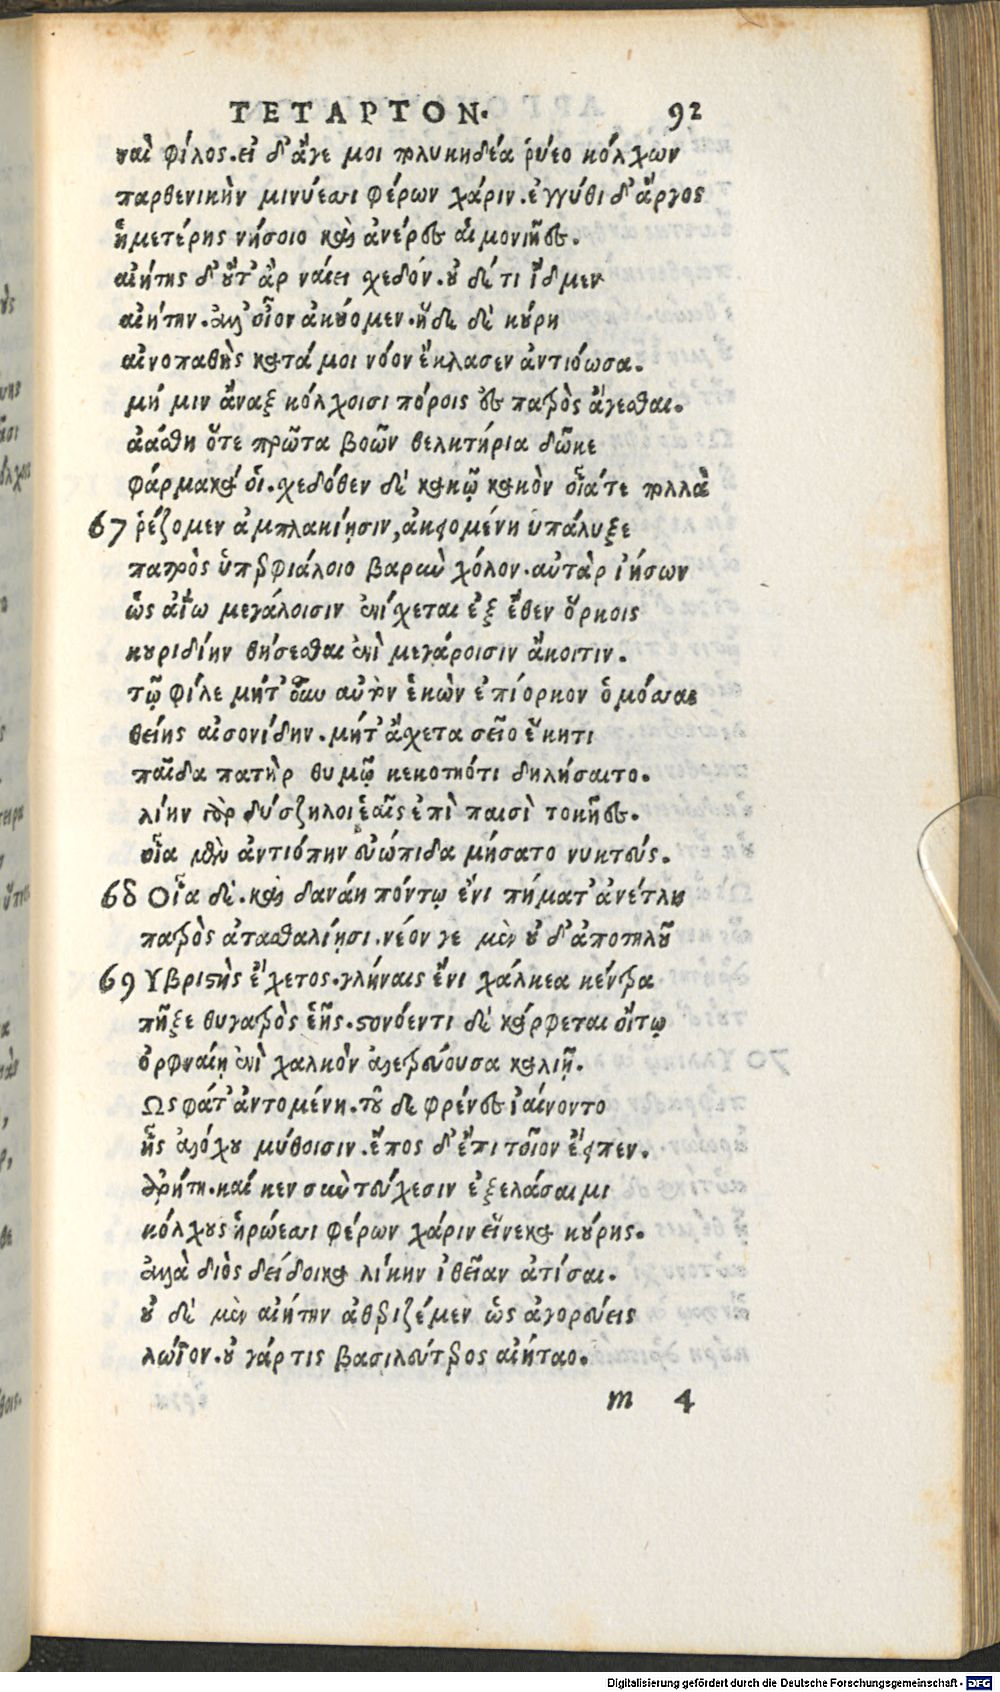 ΤΕΤΑΡΤΟΝ. 92
ναὶ φίλος. εἰ δ' ἄγε μοι πολυκηδέα ῥύεο κόλχων
παρθενικὴν μινύεσσι φέρων χάριν. ἐγγύθι δ' ἄργος
ἡμετέρης νήσοιο καὶ ἀνέρες αἱμονιῆες.
αἰήτης δ' οὔτ' ἂρ ναίει σχεδόν. οὐ δέ τι ἴδμεν
αἰήτην. ἀλλ' οἶον ἀκούομεν. ἥδε δὲ κούρη
αἰνοπαθὴς κατά μοι νόον ἔκλασεν ἀντιόωσα.
μή μιν ἄναξ κόλχοισι πόροις ἐς παῖρὸς ἄγεσθαι.
ἀάσθη ὅτε πρῶτα βοῶν θελητήρια δῶκε
φάρμακά οἱ. σχεδόθεν δὲ κακῷ κακὸν οἷά τε πολλὰ
67 ῥέζομεν ἀμπλακίῃσιν, ἀκειομένη ὑπάλυξε
πατρὸς ὑπερφιάλοιο βαρὺν χόλον. αὐτὰρ ἰήσων
ὡς ἀΐω μεγάλοισιν ἐνίσχεται ἐξ ἕθεν ὅρκοις
κουριδίην θήσεσθαι ἐνὶ μεγάροισιν ἄκοιτιν.
τῷ φίλε μήτ' οὖν αὐτὸν ἑκὼν ἐπίορκον ὁμόσσαι
θείης αἰσονίδην. μήτ' ἄσχετα σεῖο ἕκητι
παῖδα πατὴρ θυμῷ κεκοτηότι δηλήσαιτο.
λίην γὰρ δύσζηλοι ἑαῖς ἐπὶ παισὶ τοκῆες.
οἷα μὲν ἀντιόπην εὐώπιδα μήσατο νυκτεύς.
68 Οἷα δὲ. καὶ δανάη πόντῳ ἔνι πήματ' ἀνέτλη
πατρὸς ἀτασθαλίῃσι. νέον γε μὲν οὐ δ' ἀποτηλοῦ
69 Υβριστὴς ἔχετος. γλήναις ἔνι χάλκεα κέντρα
πῆξε θυγατρὸς ἑῆς. στονόεντι δὲ κάρφεται οἴτῳ
ὀρφναίῃ ἐνὶ χαλκὸν ἀλετρεύουσα καλιῇ.
Ως φάτ' ἀντομένη. τοῦ δὲ φρένες ἰαίνοντο
ἧς ἀλόχου μύθοισιν. ἔπος δ' ἔπι τοῖον ἔειπεν.
ἀρήτη. καί κεν σὺν τεύχεσιν ἐξελάσαιμι
κόλχους ἡρώεσσι φέρων χάριν εἵνεκα κούρης.
ἀλλὰ διὸς δείδοικα δίκην ἰθεῖαν ἀτίσαι.
οὐ δὲ μὲν αἰήτην ἀθεριζέμεν ὡς ἀγορεύεις
λώϊον. οὐ γάρ τις βασιλεύτερος αἰήταο.
m 4
Digitalisierung gefördert durch die Deutsche Forschungsgemeinschaft - DFG